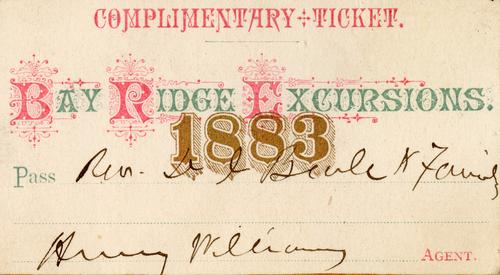 COMPLIMENTARY TICKET.
BAY RIDGE EXCURSIONS.
1883
Pass Rev. & Family
Henry Williams AGENT.